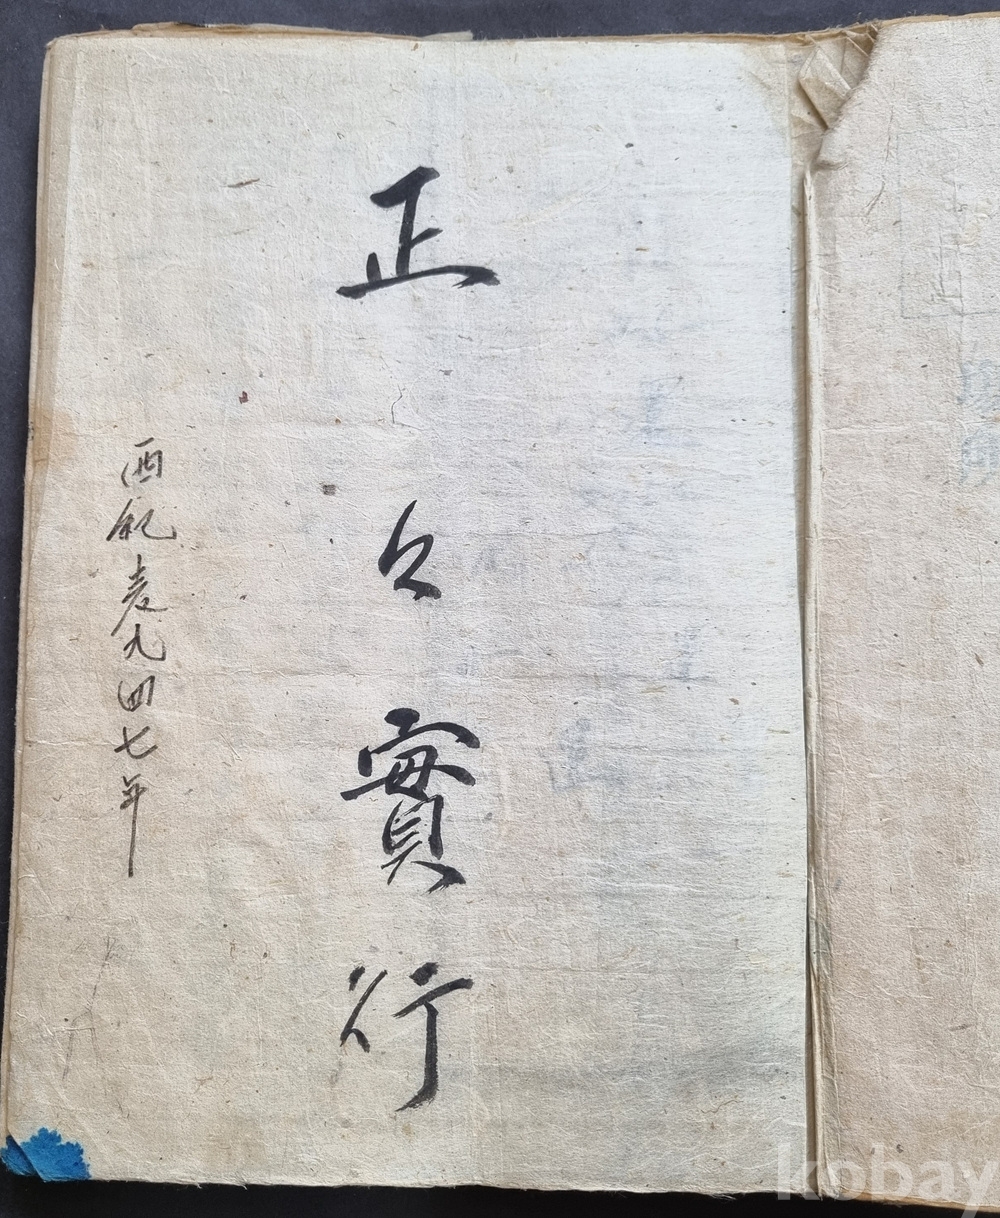 正々實行
西紀壱九四七年
kobay